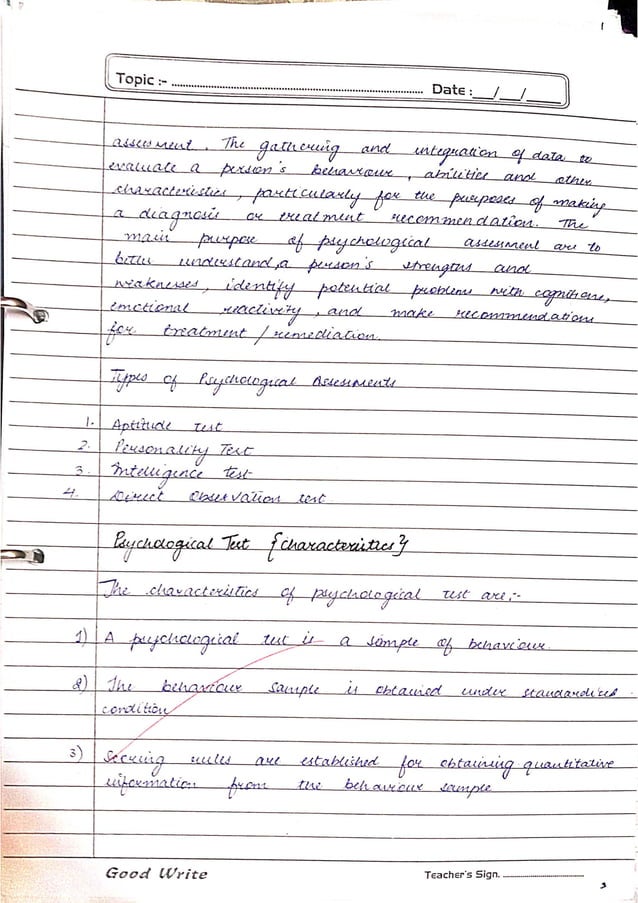 1
Topic :- ........ Date : __/__/____
assessment. The gathering and integration of data to
evaluate a person's behaviour, abilities and other
characteristics, particularly for the purposes of making
a diagnosis or treatment recommendation. The
main purpose of psychological assessment are to
better understand, a person's strengths and
weaknesses, identify potential problems with cognitions,
emotional reactivity, and make recommendations
for treatment / remediation.
Types of Psychological Assessments
1. Aptitude test
2. Personality Test
3. Intelligence test
4. Direct Observation test
Psychological Test {characteristics}
The characteristics of psychological test are:-
1) A psychological test is a sample of behaviour.
2) The behaviour sample is obtained under standardized
condition
3) Scoring rules are established for obtaining quantitative
information from the behaviour sample
Good Write Teacher's Sign. ........
3